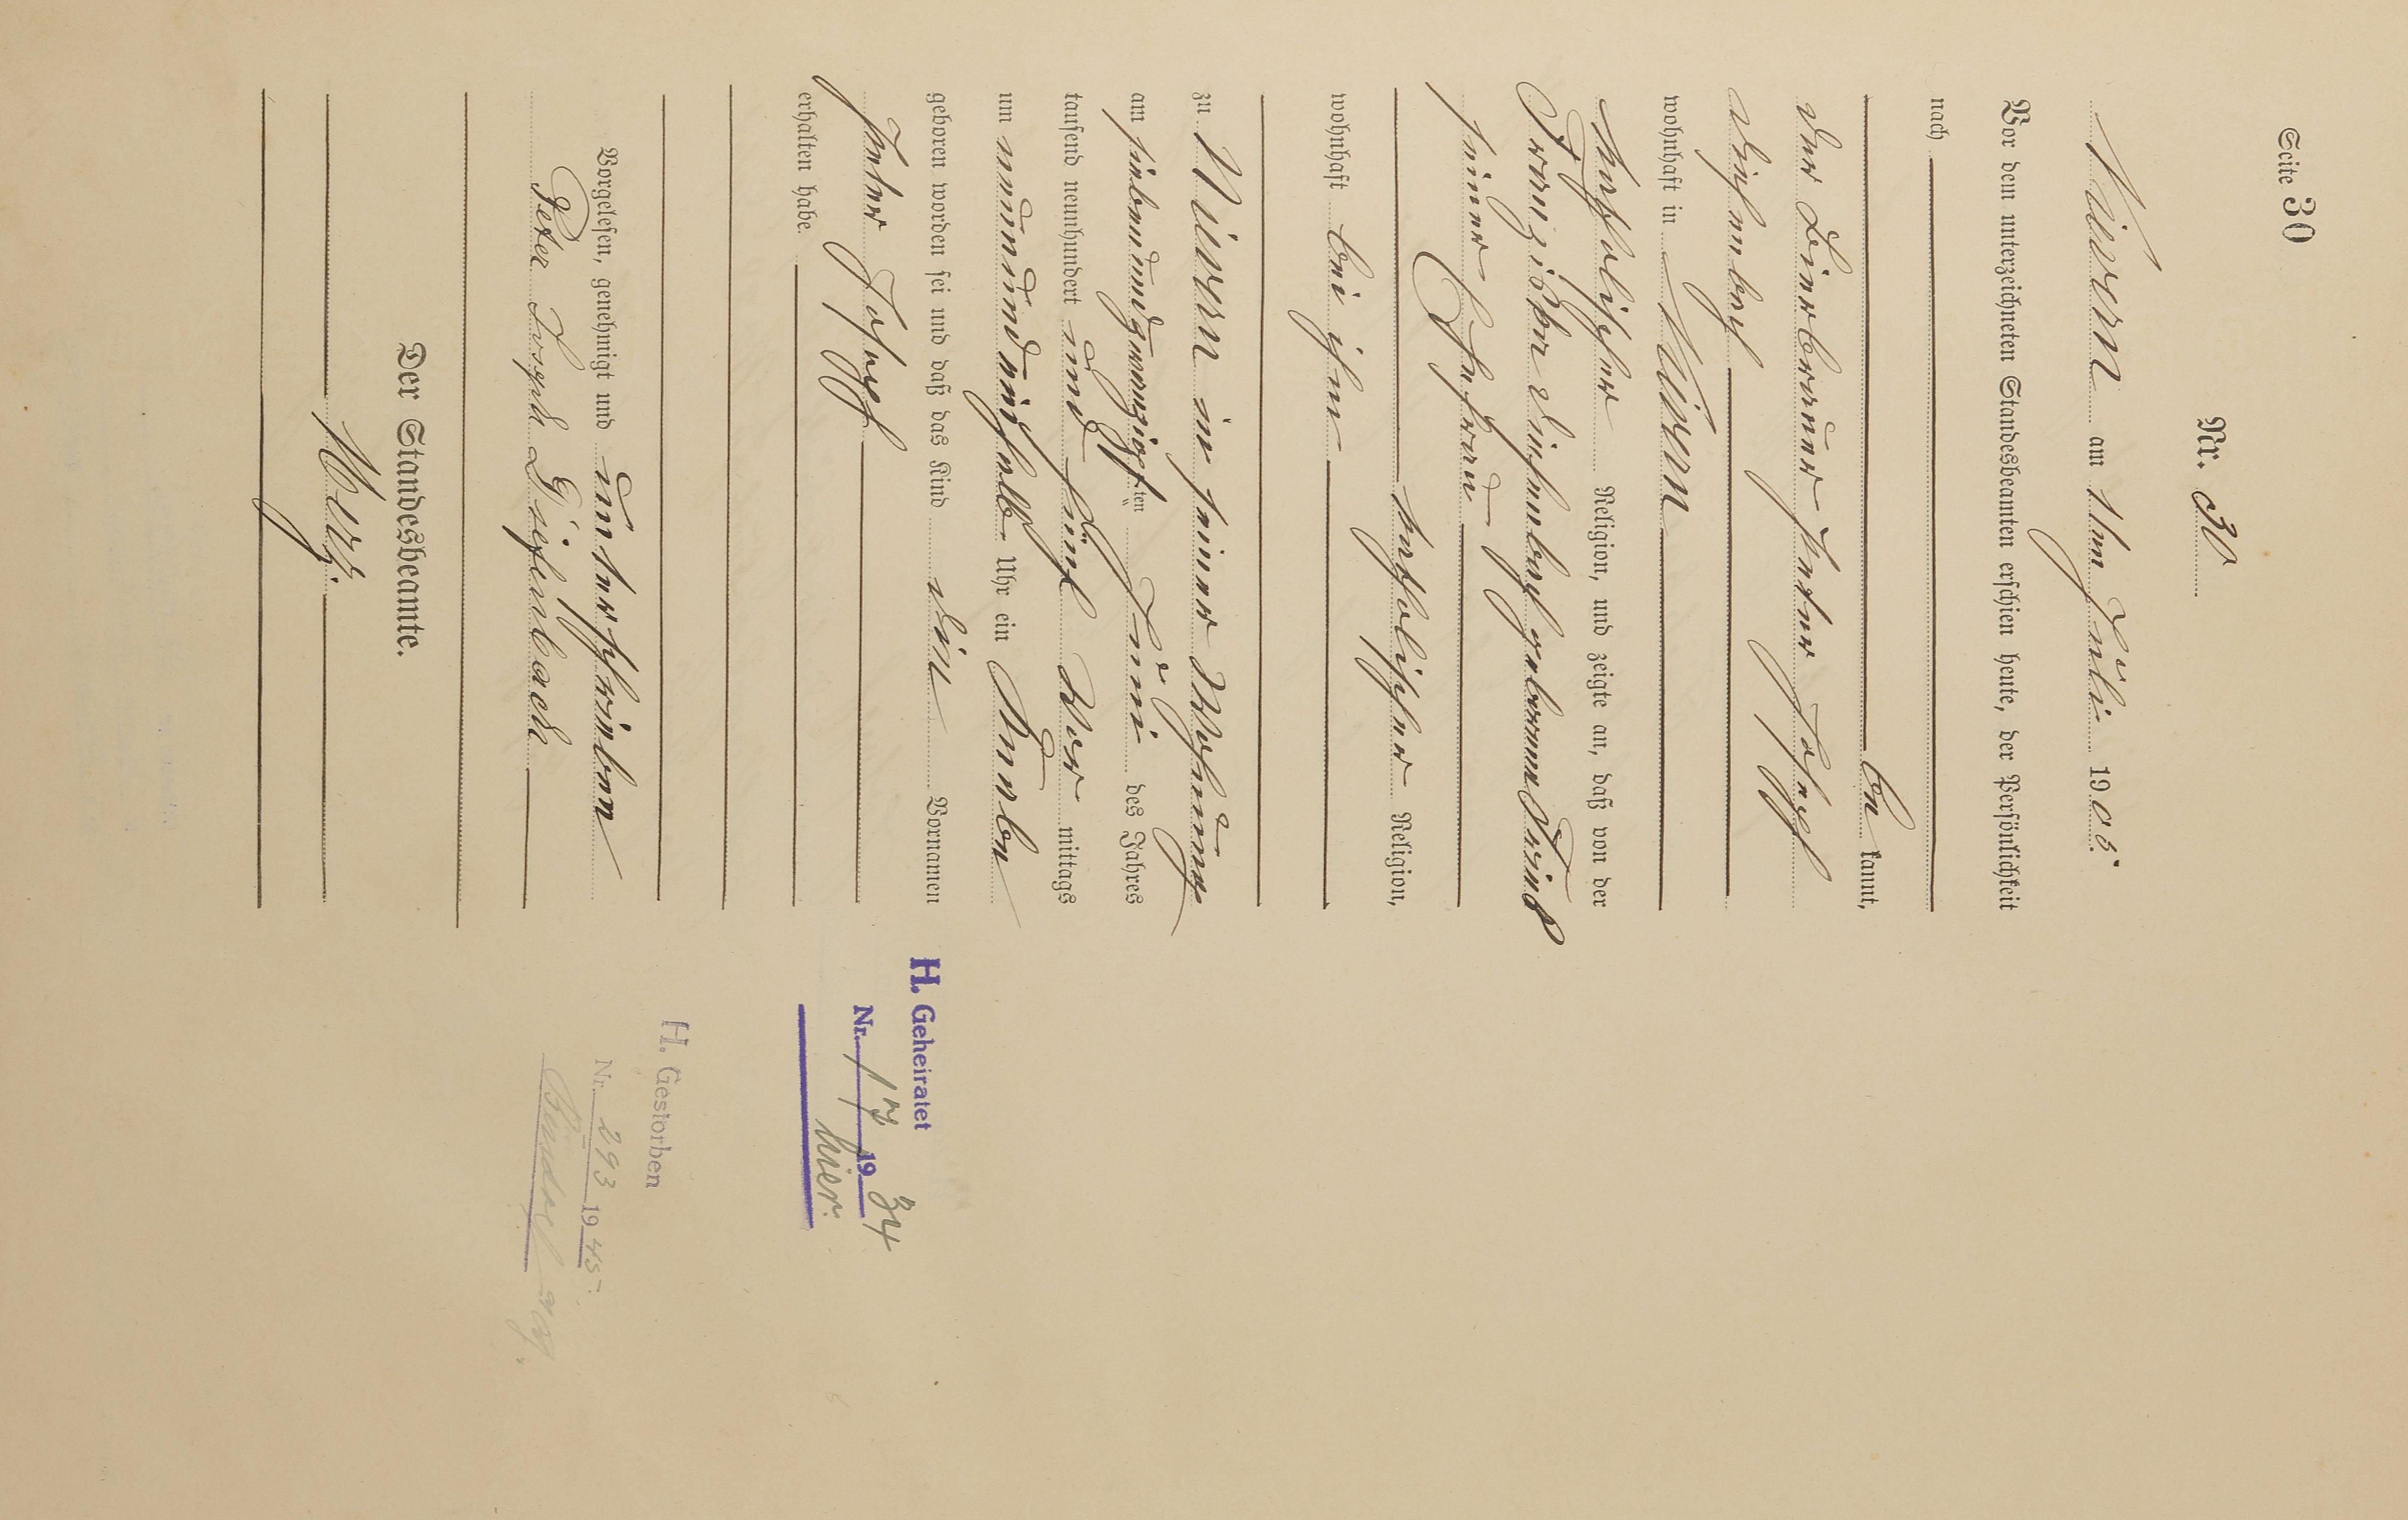 Seite 30
Nr. 30
Nievern am 1ten Juli 1905.
Vor dem unterzeichneten Standesbeamten erschien heute, der Persönlichkeit
nach
be kannt,
der Bierbrauer Peter Josef
Diefenbach
wohnhaft in Nievern
katholischer Religion, und zeigte an, daß von der
Franziska Diefenbach geborene
seiner Ehefrau
katholischer Religion,
wohnhaft bei ihm
zu Nievern in seiner Wohnung
am siebenundzwanzigsten Juni des Jahres
tausend neunhundert und fünf Vor mittags
um neunundeinhalb Uhr ein Knabe
geboren worden sei und daß das Kind die Vornamen
Peter Josef
erhalten habe.
Vorgelesen, genehmigt und unterschrieben
Peter Joseph Diefenbach
Der Standesbeamte.
H. Geheiratet
Nr. 17 19 34
hier.
H. Gestorben
Nr. 293 19 45.